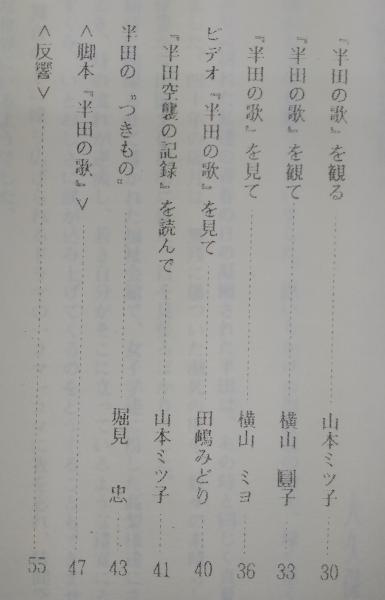 『半田の歌』を観る……………山本ミツ子…30
『半田の歌』を観て……………横山 圓子…33
『半田の歌』を見て……………横山 ミヨ…36
ビデオ『半田の歌』を見て……………田嶋みどり…40
『半田空襲の記録』を読んで……………山本ミツ子…41
半田の〝つきもの〟……………堀見 忠…43
＜脚本『半田の歌』＞……………47
＜反響＞……………55